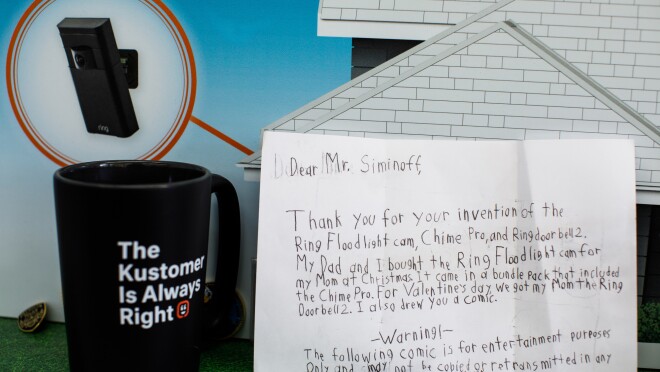 ring
The
Kustomer
Is Always
Right
Dear Mr. Siminoff,
Thank you for your invention of the
Ring Floodlight cam, Chime Pro, and Ring doorbell 2.
My Dad and I bought the Ring Floodlight cam for
my Mom at Christmas. It came in a bundle pack that included
the Chime Pro. For Valentine's day we got my Mom the Ring
Doorbell 2. I also drew you a comic.
-Warning!-
The following comic is for entertainment purposes
Only and may not be copied or retransmitted in any